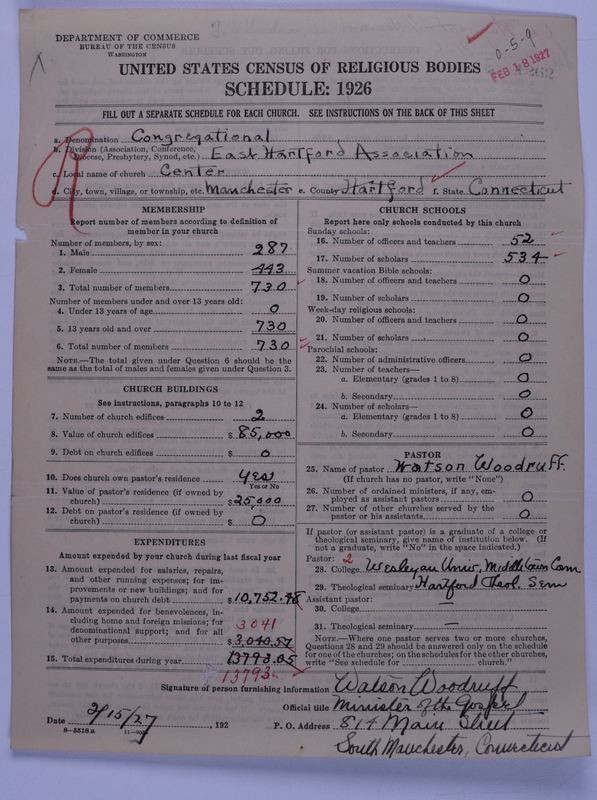 DEPARTMENT OF COMMERCE
BUREAU OF THE CENSUS
WASHINGTON
0-5-9
FEB 18 1927
UNITED STATES CENSUS OF RELIGIOUS BODIES
SCHEDULE: 1926
FILL OUT A SEPARATE SCHEDULE FOR EACH CHURCH. SEE INSTRUCTIONS ON THE BACK OF THIS SHEET
R
a. Denomination Congregational
b. Division (Association, Conference, Diocese, Presbytery, Synod, etc.) East Hartford Association
c. Local name of church Center
d. City, town, village, or township, etc. Manchester e. County Hartford f. State Connecticut
MEMBERSHIP
Report number of members according to definition of
member in your church
Number of members, by sex:
1. Male 287
2. Female 443
3. Total number of members 730
Number of members under and over 13 years old:
4. Under 13 years of age 0
5. 13 years old and over 730
6. Total number of members 730
NOTE.—The total given under Question 6 should be the
same as the total of males and females given under Question 3.
CHURCH BUILDINGS
See instructions, paragraphs 10 to 12
7. Number of church edifices 2
8. Value of church edifices $ 85,000
9. Debt on church edifices $ 0
10. Does church own pastor's residence yes
Yes or No
11. Value of pastor's residence (if owned by
church) $ 25,000
12. Debt on pastor's residence (if owned by
church) $ 0
EXPENDITURES
Amount expended by your church during last fiscal year
13. Amount expended for salaries, repairs,
and other running expenses; for im-
provements or new buildings; and for
payments on church debt $ 10,752.48
14. Amount expended for benevolences, in-
cluding home and foreign missions; for
denominational support; and for all
other purposes $ 3,040.57
3041
15. Total expenditures during year 13793.05
13793
CHURCH SCHOOLS
Report here only schools conducted by this church
Sunday schools:
16. Number of officers and teachers 52
17. Number of scholars 534
Summer vacation Bible schools:
18. Number of officers and teachers 0
19. Number of scholars 0
Week-day religious schools:
20. Number of officers and teachers 0
21. Number of scholars 0
Parochial schools:
22. Number of administrative officers 0
23. Number of teachers—
a. Elementary (grades 1 to 8) 0
b. Secondary 0
24. Number of scholars—
a. Elementary (grades 1 to 8) 0
b. Secondary 0
PASTOR
25. Name of pastor Watson Woodruff.
(If church has no pastor, write "None")
26. Number of ordained ministers, if any, em-
ployed as assistant pastors 0
27. Number of other churches served by the
pastor or his assistants 0
If pastor (or assistant pastor) is a graduate of a college or
theological seminary, give name of institution below. (If
not a graduate, write "No" in the space indicated.)
Pastor: 2
28. College Wesleyan Univ, Middletown Conn
29. Theological seminary Hartford Theol. Sem
Assistant pastor:
30. College —
31. Theological seminary —
NOTE.—Where one pastor serves two or more churches,
Questions 28 and 29 should be answered only on the schedule
for one of the churches; on the schedules for the other churches,
write "See schedule for church."
Signature of person furnishing information Watson Woodruff
Official title Minister of the Gospel
Date 2/15/27, 192
P. O. Address 814 Main Street
South Manchester, Connecticut
8—5518 a